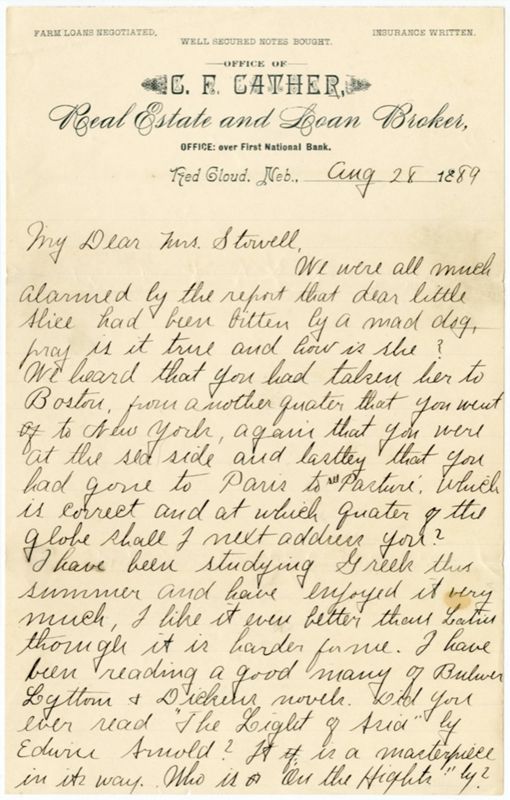 FARM LOANS NEGOTIATED.
WELL SECURED NOTES BOUGHT.
INSURANCE WRITTEN.
OFFICE OF
C. F. CATHER,
Real Estate and Loan Broker,
OFFICE: over First National Bank.
Red Cloud, Neb., Aug 28 1889
My Dear Mrs. Stowell,
We were all much
alarmed by the report that dear little
Alice had been bitten by a mad dog,
pray is it true and how is she?
We heard that you had taken her to
Boston, from another quater that you went
to New York, again that you were
at the sea side and lastley that you
had gone to Paris to see Pasture. which
is correct and at which quater of the
globe shall I next address you?
I have been studying Greek this
summer and have enjoyed it very
much, I like it even better than Latin
though it is harder for me. I have
been reading a good many of Bulwer
Lyttons & Dickens novels. Did you
ever read "The Light of Asia" by
Edwin Arnold? It is a masterpiece
in its way. Who is "On the Hights" by?